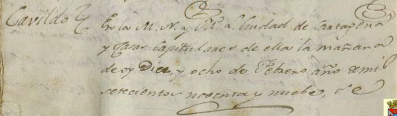 Cavildo En la M. N. y M. L. Ciudad de Cartagena
y Casas Capitulares de ella la mañana
de oy Diez y ocho de Febrero año de mil
setecientos noventa y nuebe, se